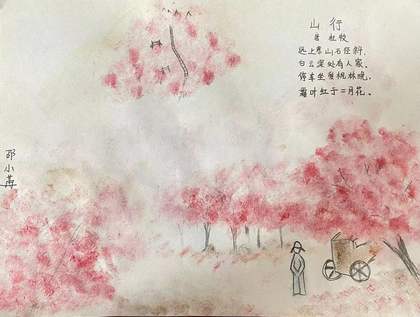 山行
唐 杜牧
远上寒山石径斜,
白云深处有人家。
停车坐爱枫林晚,
霜叶红于二月花。